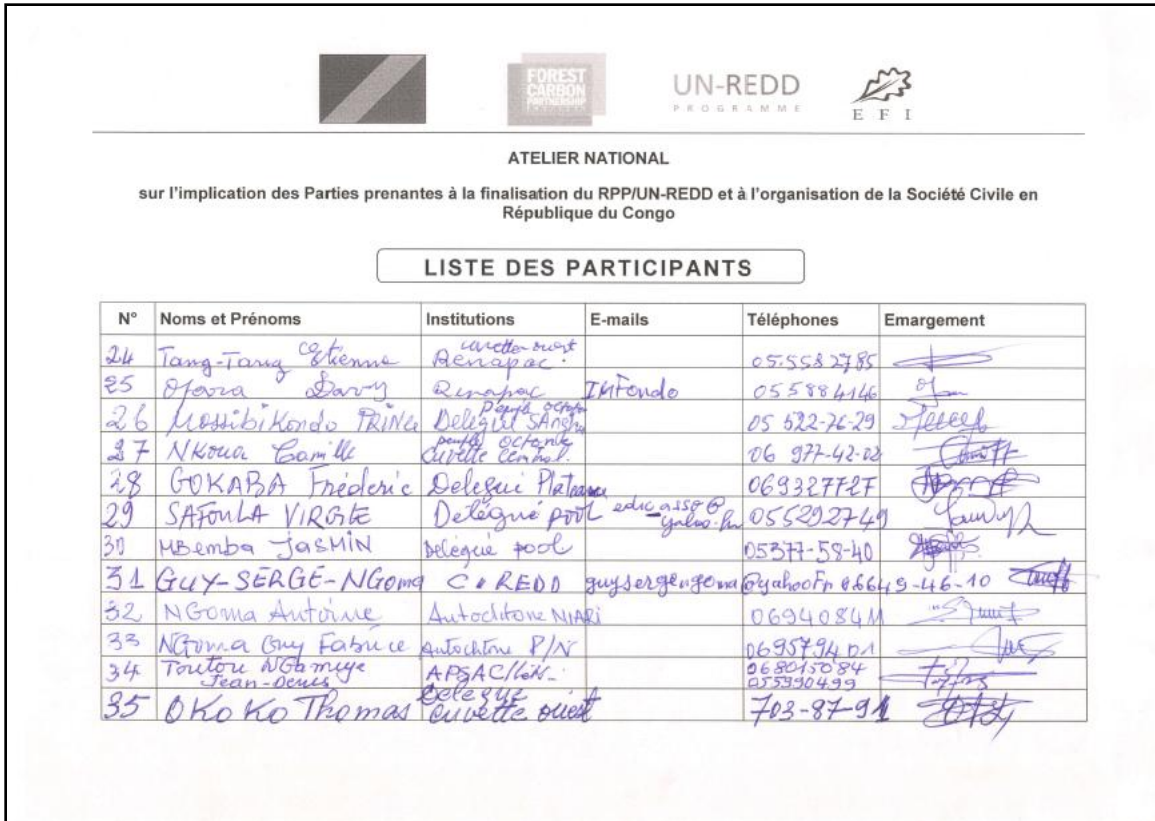 FOREST
CARBON
PARTNERSHIP
UN-REDD
PROGRAMME
EFI
ATELIER NATIONAL
sur l'implication des Parties prenantes à la finalisation du RPP/UN-REDD et à l'organisation de la Société Civile en
République du Congo
LISTE DES PARTICIPANTS
N° Noms et Prénoms Institutions E-mails Téléphones Emargement
24 Tang-Tang Etienne cuvette ouest Renapac 05.558 27 85
25 Davy Renapac 055884146
26 Mossibikondo PRINCE Délégué SANgha 05 522-76-29
27 NKoua Camille Cuvette central 06 977-42-02
28 GOKABA Fréderic Delegué Plateaux 069327727
29 SAFOULA VIRGILE Delégué pool edic_asso@ yahoo.fr 055292749
30 MBemba JASMIN Délégué pool 05377-58-40
31 GUY-SERGE-NGoma C.REDD guysergengoma@yahooFr 06649-46-10
32 NGoma Antoine Autochtone NIARI 06940841
33 NGoma Guy Fabrice Autochtone P/N 069579401
34 Toutou NGamiye Jean-Denis 068015084 055390499
35 OKoKo Thomas Délégué cuvette ouest 703-87-91